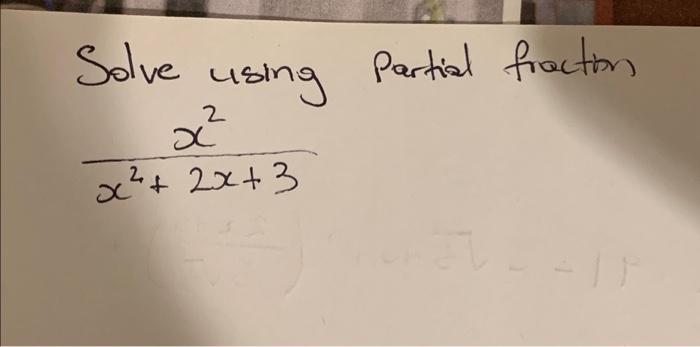 Solve using Partial fraction
x²
x² + 2x + 3